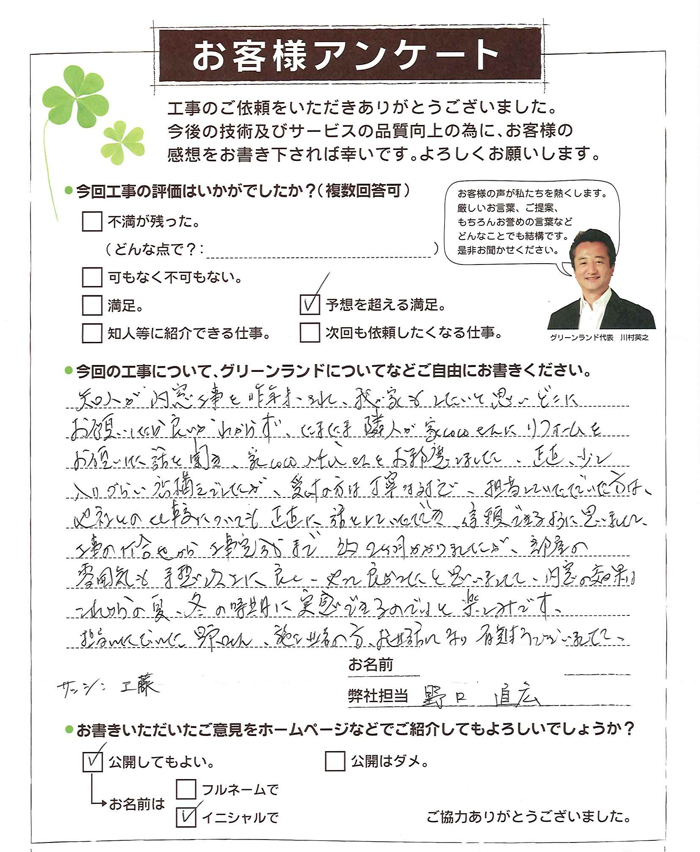 お客様アンケート
工事のご依頼をいただきありがとうございました。
今後の技術及びサービスの品質向上の為に、お客様の
感想をお書き下されば幸いです。よろしくお願いします。
●今回工事の評価はいかがでしたか?(複数回答可)
お客様の声が私たちを熱くします。
厳しいお言葉、ご提案、
もちろんお誉めの言葉など
どんなことでも結構です。
是非お聞かせください。
不満が残った。
(どんな点で?: )
可もなく不可もない。
満足。
✓ 予想を超える満足。
知人等に紹介できる仕事。
次回も依頼したくなる仕事。
グリーンランド代表 川村英之
●今回の工事について、グリーンランドについてなどご自由にお書きください。
知人が内窓工事を昨年末され、我が家もしたいと思いどこに
お願いしたら良いかわからず、たまたま隣人が家じさんにリフォームを
お願いした話を聞き、
正直、少し
入りづらい店構えでしたが、受付の方は丁寧な対応で、担当していただいた方は、
他社との比較についても正直に話をしていただき、信頼できるように思いました。
工事の打合せから工事完了まで 約2ヶ月かかりましたが、部屋の
雰囲気も予想以上に良く、やって良かったと思いました。内窓の効果は
これからの夏、冬の時期に実感できるのでは、と楽しみです。
担当いただいた野口さん、施工業者の方、
有難うございました。
サッシ:工藤
お名前
弊社担当 野口 直広
●お書きいただいたご意見をホームページなどでご紹介してもよろしいでしょうか?
✓ 公開してもよい。
公開はダメ。
お名前は
フルネームで
✓ イニシャルで
ご協力ありがとうございました。